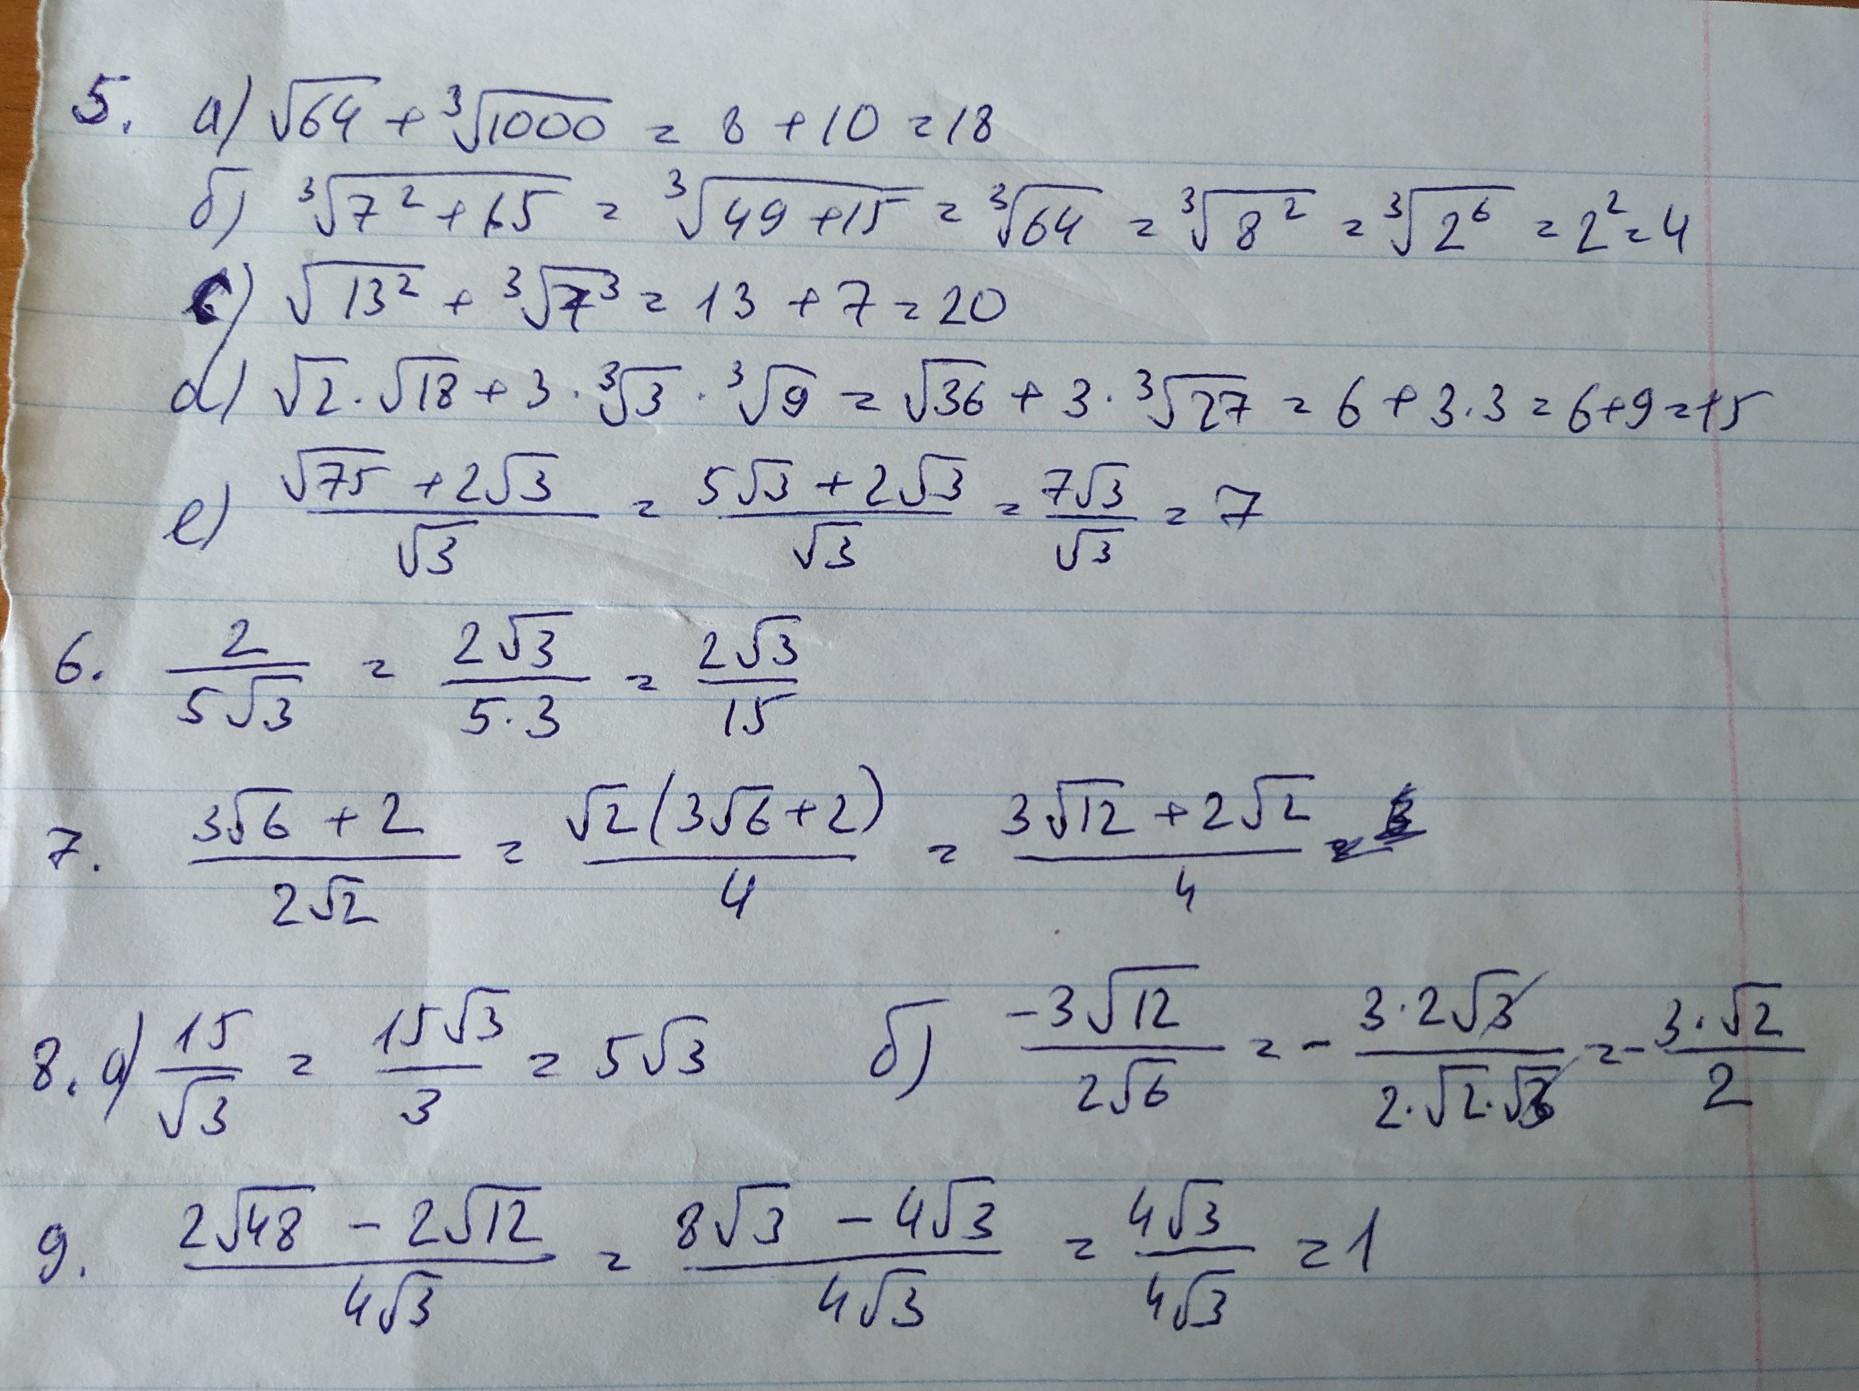 5. а) √64 + ∛1000 = 8 + 10 = 18
б) ∛(7² + 15) = ∛(49 + 15) = ∛64 = ∛(8²) = ∛(2⁶) = 2² = 4
c) √(13²) + ∛(7³) = 13 + 7 = 20
d) √2 · √18 + 3 · ∛3 · ∛9 = √36 + 3 · ∛27 = 6 + 3 · 3 = 6 + 9 = 15
e) (√75 + 2√3)/√3 = (5√3 + 2√3)/√3 = 7√3/√3 = 7
6. 2/(5√3) = 2√3/(5·3) = 2√3/15
7. (3√6 + 2)/(2√2) = √2(3√6 + 2)/4 = (3√12 + 2√2)/4
8. а) 15/√3 = 15√3/3 = 5√3 б) -3√12/(2√6) = - 3·2√3/(2·√2·√3) = - 3·√2/2
9. (2√48 - 2√12)/(4√3) = (8√3 - 4√3)/(4√3) = 4√3/(4√3) = 1